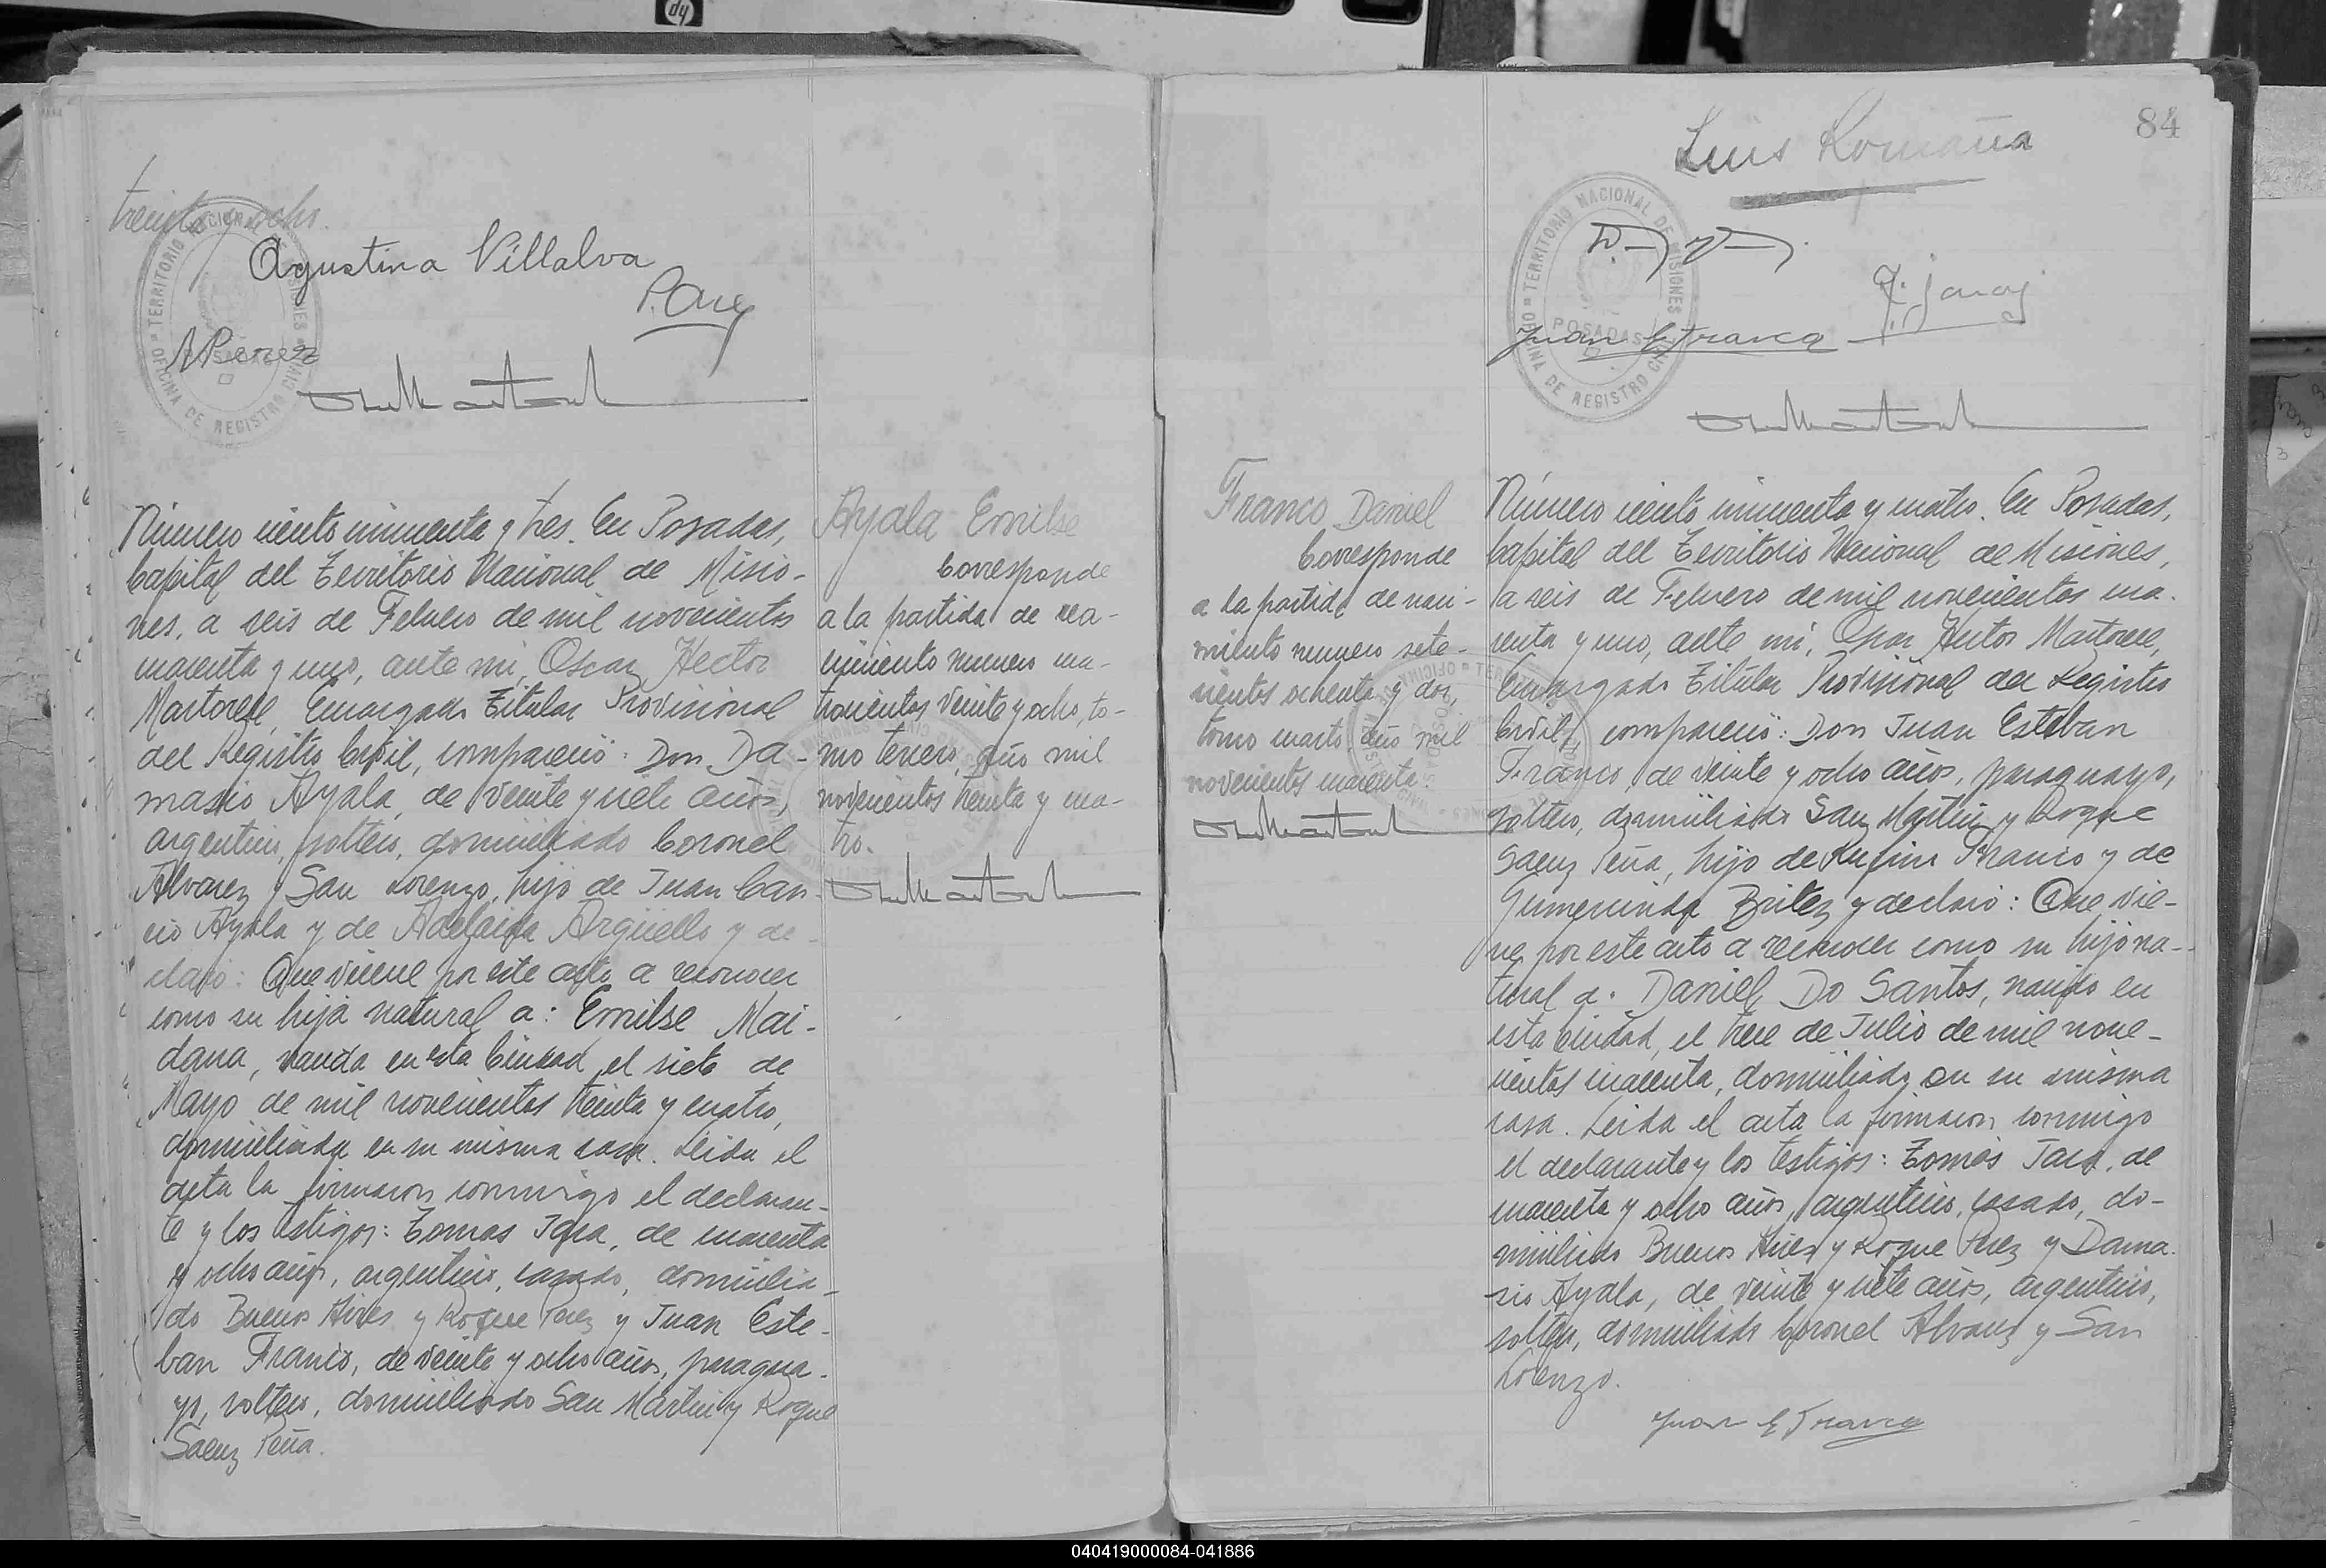 treinta y ocho.
Agustina Villalva
TERRITORIO NACIONAL DE MISIONES
OFICINA DE REGISTRO CIVIL
Número ciento cincuenta y tres. En Posadas,
Capital del Territorio Nacional de Misio-
nes, a seis de Febrero de mil novecientos
cuarenta y uno, ante mi, Oscar Hector
Martorell, Encargado Titular Provisional
del Registro Civil, compareció: Don Da-
masio Ayala, de veinte y siete años,
argentino, soltero, domiciliado Coronel
Alvarez y San Lorenzo, hijo de Juan Can-
cio Ayala y de Adelaida Argüello y de-
claró: Que viene por este acto a reconocer
como su hija natural a: Emilse Mai-
dana, nacida en esta Ciudad, el siete de
Mayo de mil novecientos treinta y cuatro,
domiciliada en su misma casa. Leida el
acta la firmaron conmigo el declaran-
te y los testigos: Tomas Jara, de cuarenta
y ocho años, argentino, casado, domicilia-
do Buenos Aires y Roque Perez y Juan Este-
ban Franco, de veinte y ocho años, paragua-
yo, soltero, domiciliado San Martin y Roque
Saenz Peña.
Ayala Emilse
Corresponde
a la partida de na-
cimiento numero cua-
trocientos veinte y ocho, to-
mo tercero, año mil
novecientos treinta y cua-
tro.
84
Luis Romaña
TERRITORIO NACIONAL DE MISIONES
POSADAS
OFICINA DE REGISTRO CIVIL
Juan E Franco
Franco Daniel
Corresponde
a la partida de naci-
miento numero sete-
cientos ochenta y dos,
tomo cuarto, año mil
novecientos cuarenta.
Número ciento cincuenta y cuatro. En Posadas,
Capital del Territorio Nacional de Misiones,
a seis de Febrero de mil novecientos cua-
renta y uno, ante mi, Oscar Hector Martorell,
Encargado Titular Provisional del Registro
Civil, compareció: Don Juan Esteban
Franco, de veinte y ocho años, paraguayo,
soltero, domiciliado San Martin y Roque
Saenz Peña, hijo de Rufino Franco y de
Gumercinda Britez y declaró: Que vie-
ne por este acto a reconocer como su hijo na-
tural a: Daniel Do Santos, nacido en
esta Ciudad, el trece de Julio de mil nove-
cientos cuarenta, domiciliado en su misma
casa. Leida el acta la firmaron conmigo
el declarante y los testigos: Tomás Jara, de
cuarenta y ocho años, argentino, casado, do-
miciliado Buenos Aires y Roque Perez y Dama-
sio Ayala, de veinte y siete años, argentino,
soltero, domiciliado Coronel Alvarez y San
Lorenzo.
Juan E Franco
040419000084-041886